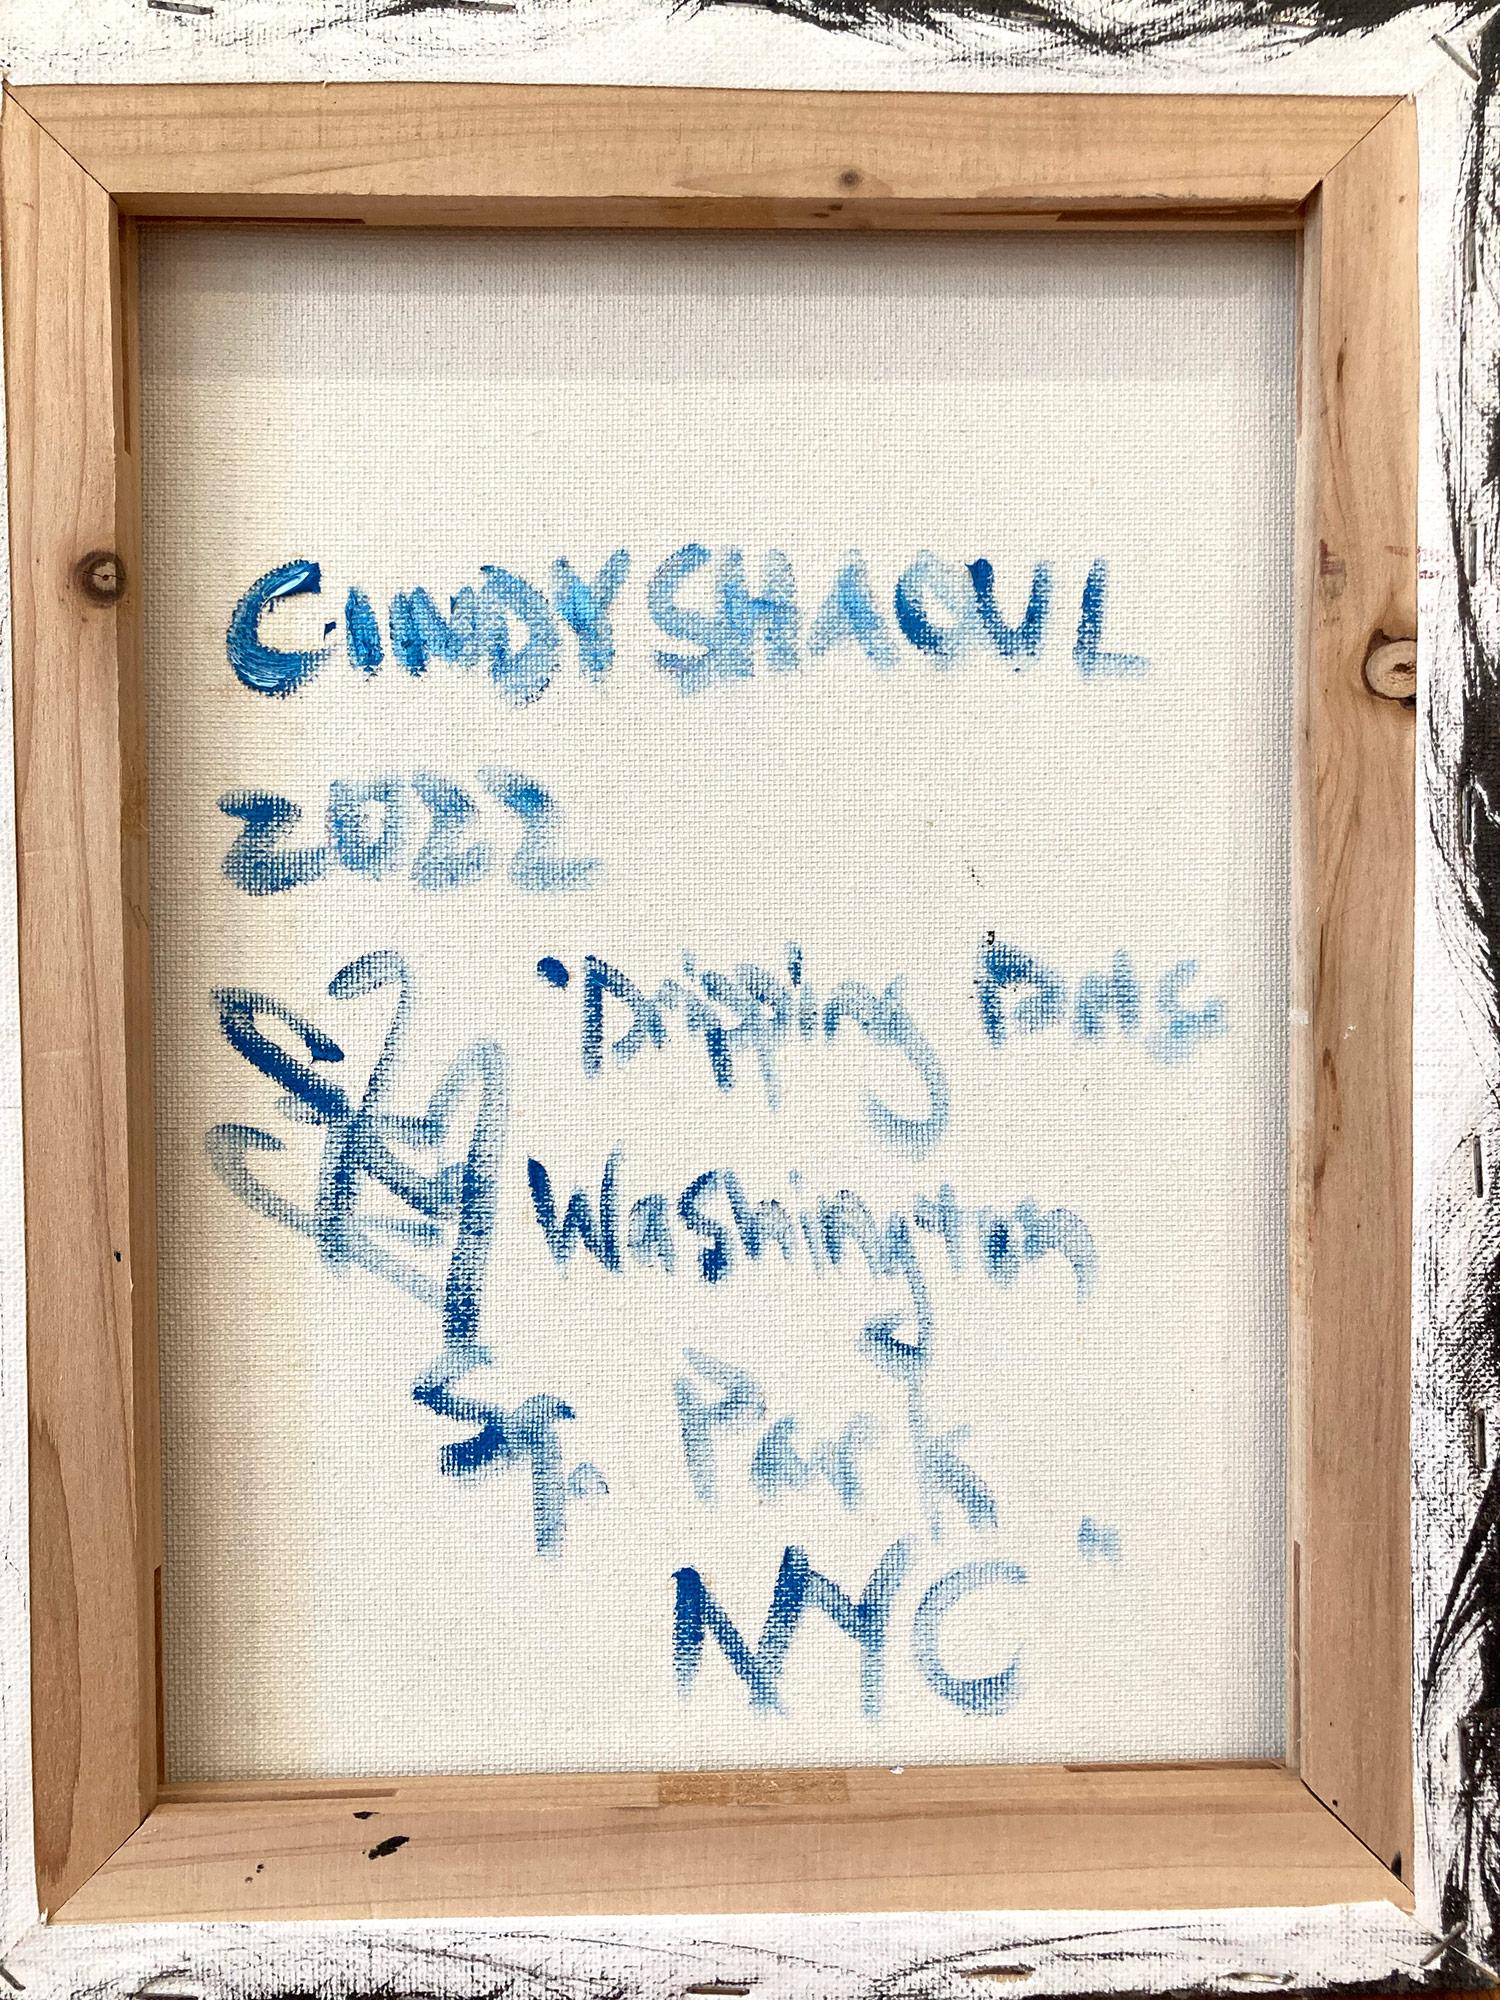 CINDY SHAOUL
2022
"Dripping Dots
Washington
Park"
NYC